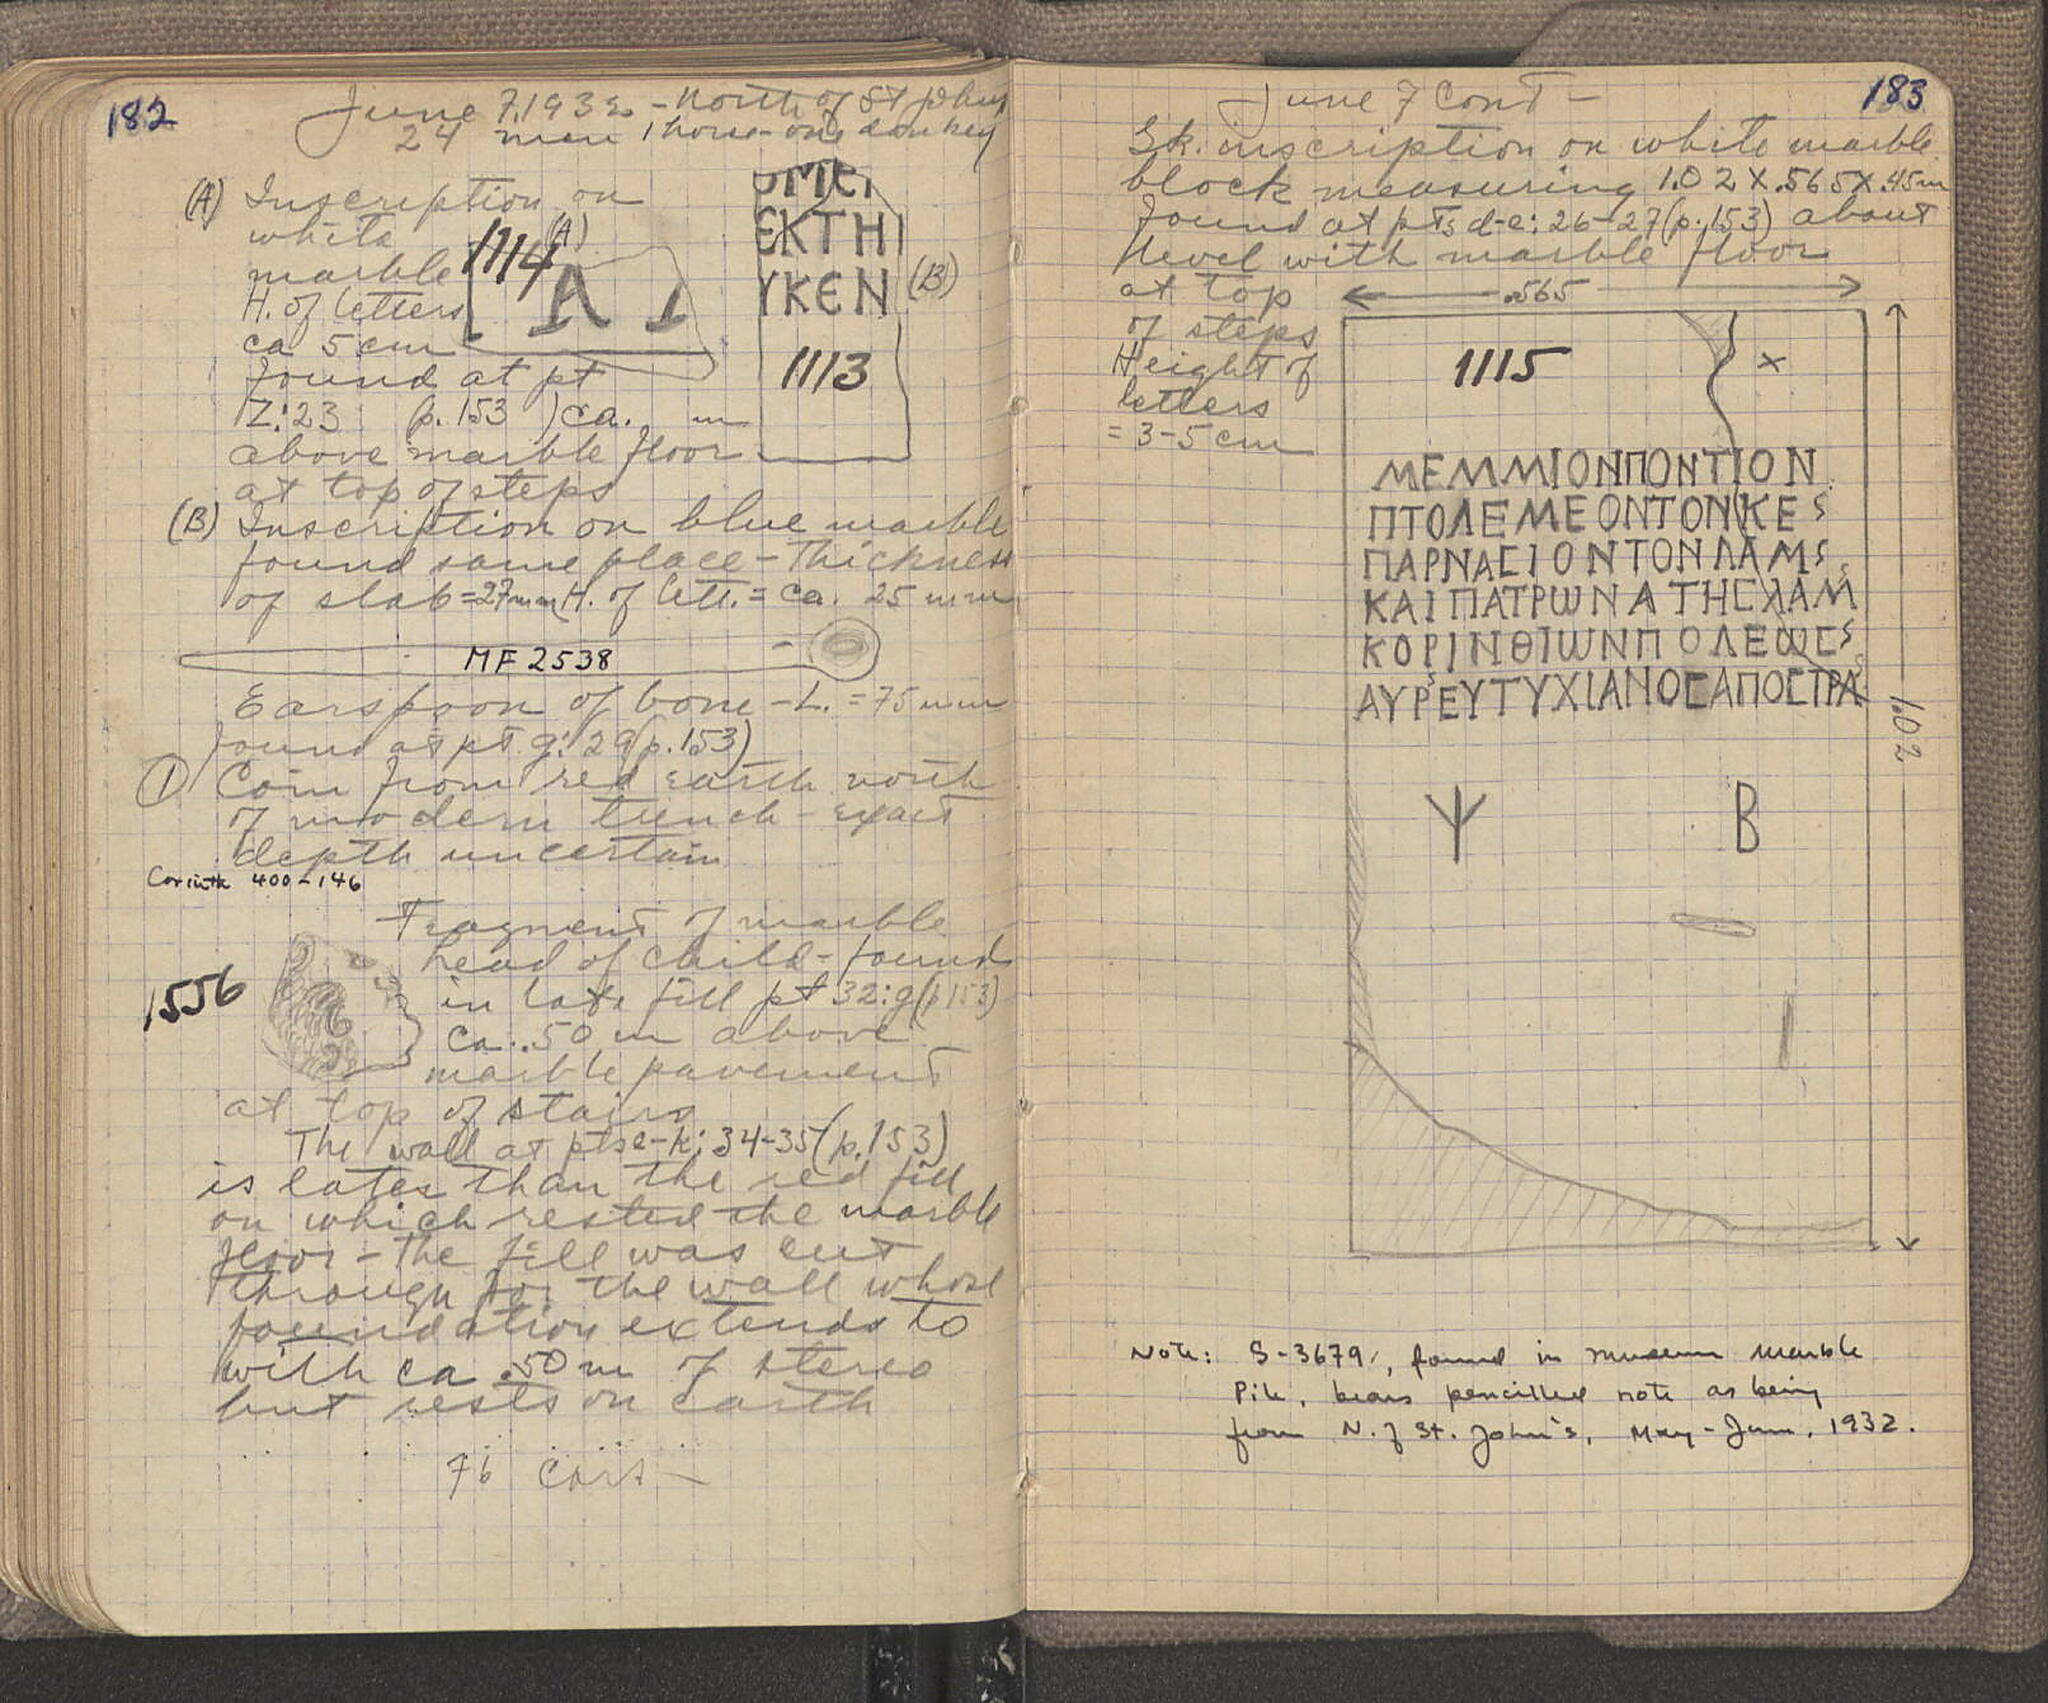 182
June 7, 1932 - North of St Johns
24 men 1 horse - one donkey
(A) Inscription on
white
marble
H. of letters
ca 5 cm
found at pt
Z:23 (p. 153) ca. m
above marble floor
at top of steps
1114 (A)
ΕΚΤΗΙ
ΥΚΕΝ (B)
1113
(B) Inscription on blue marble
found same place - Thickness
of slab = 27 mm H. of lett. = ca. 25 mm
MF 2538
Earspoon of bone - L. = 75 mm
found at pt. g:29 (p. 153)
① Coin from red earth north
of modern trench - exact
depth uncertain
Corinth 400-146
Fragment of marble
head of child - found
in late fill pt 32:g (p 153)
ca. .50 m above
marble pavement
at top of stairs
1556
The wall at pts e-k: 34-35 (p. 153)
is later than the red fill
on which rested the marble
floor - the fill was cut
through for the wall whose
foundation extends to
with ca .50 m of stereo
but rests on earth
76
183
June 7 cont -
Gk. inscription on white marble
block measuring 1.02 X .565 X .45 m
found at pts d-e: 26-27 (p. 153) about
level with marble floor
at top
of steps
Height of
letters
= 3-5 cm
.565
1115 x
ΜΕΜΜΙΟΝΠΟΝΤΙΟΝ
ΠΤΟΛΕΜΕΟΝΤΟΝΚΕ
ΠΑΡΝΑCΙΟΝΤΟΝΛΑΜ
ΚΑΙΠΑΤΡΩΝΑΤΗCΛΑΜ
ΚΟΡΙΝΘΙΩΝΠΟΛΕΩC
ΑΥΡΕΥΤΥΧΙΑΝΟCΑΠΟCΤΡΑ
Ψ Β
1.02
Note: S-3679, found in museum marble
pile, bears pencilled note as being
from N. of St. John's, May-June, 1932.